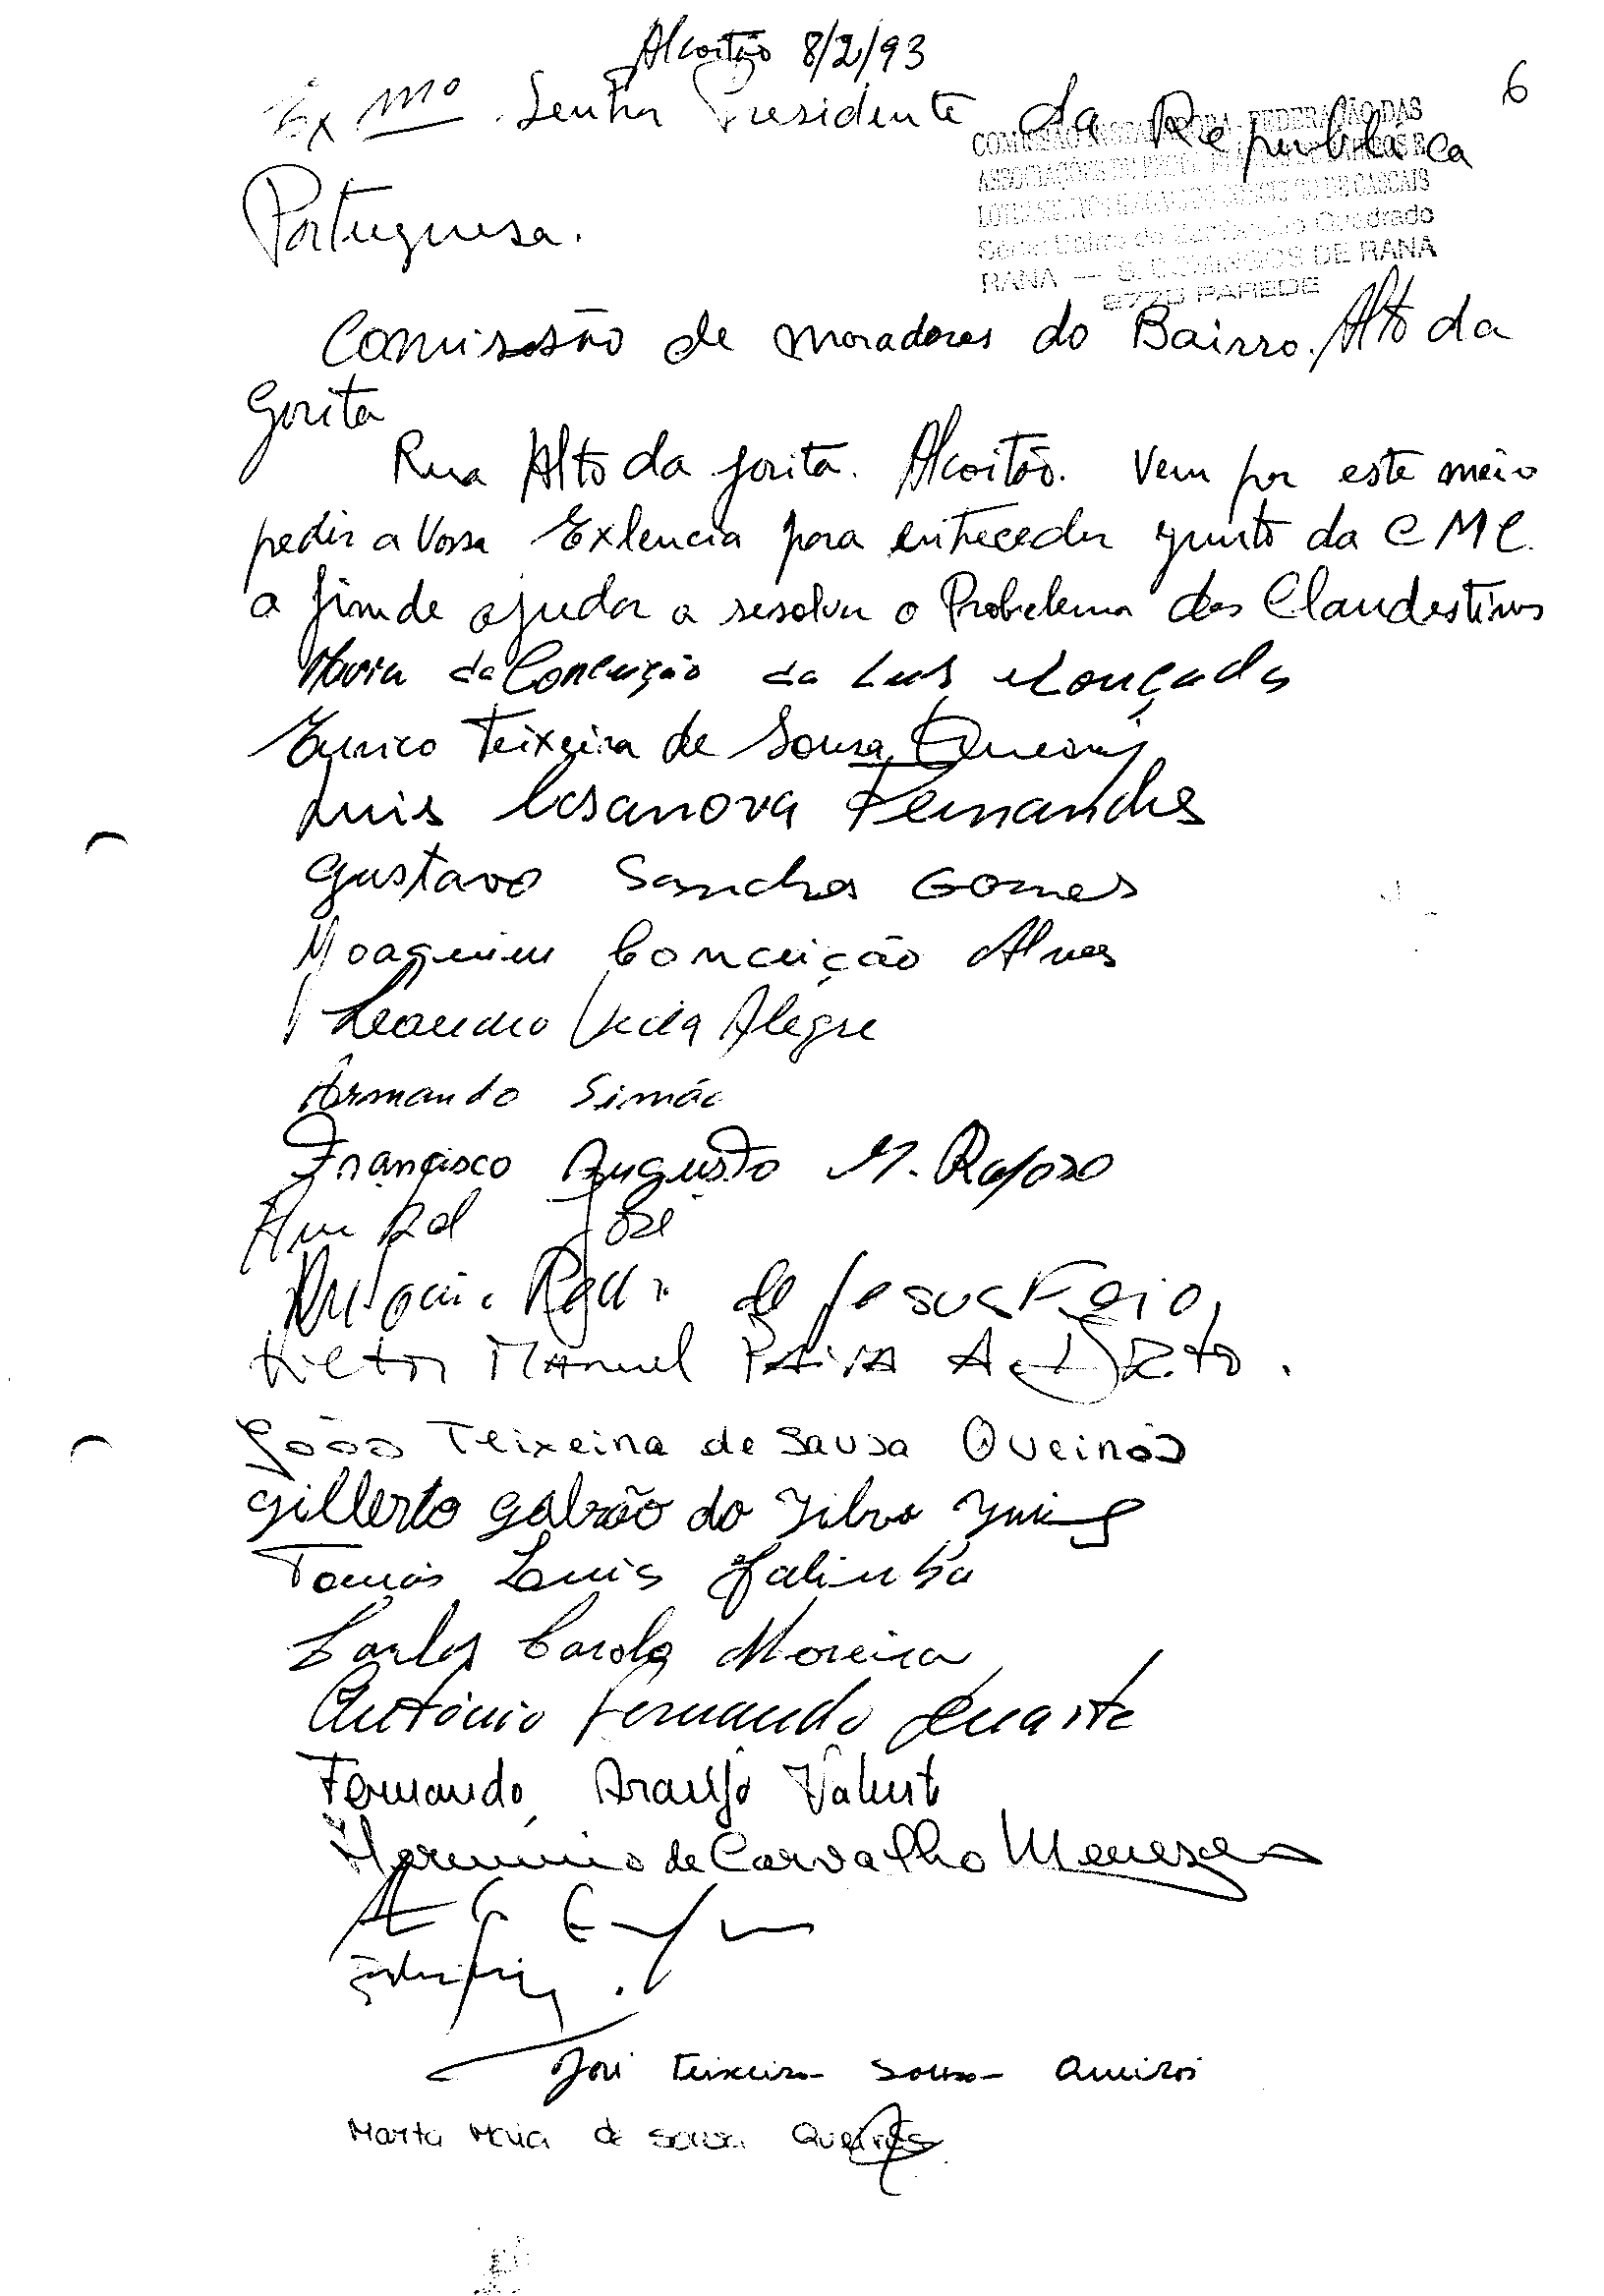 Alcoitão 8/2/93
6
Ex mº. Senhor Presidente da República
Portuguesa.
COMISSÃO INSTALADORA - FEDERAÇÃO DAS
ASSOCIAÇÕES DE
DE CASCAIS
Quadrado
RANA — S. DOMINGOS DE RANA
2775 PAREDE
Comissão de moradores do Bairro. Alto da
Gorita
Rua Alto da Gorita. Alcoitão. Vem por este meio
pedir a Vossa Exlencia para entreceder gunto da CMC.
a fim de ajudar a resolver o Probelema dos Clandestinos
Maria da Conceição da Luz Lonçada
Eurico Teixeira de Sousa Queiroz
Luis Casanova Fernandes
Gustavo Sanches Gomes
Moaquim Conceição Alves
Leandro Vila Alegre
Armando Simão
Francisco Augusto M. Raposo
José
de Jesus Feio
Victor Manuel PAIVA
João Teixeira de Sousa Queiros
Gilberto Galvão da Silva
Tomás Luis Galimba
Carlos Carola Moreira
António Fernando Duarte
Fernando Araujo Valente
Herminio de Carvalho Meneses
José Teixeira Sousa Queiros
Marta Maria de Sousa Queirós